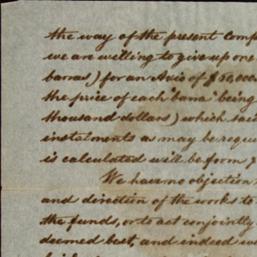 the way of the present Comp
we are willing to give up one
barras) for an Avio of $50,000
the price of each "barra" being
thousand dollars) which said
instalments as may be requ
is calculated will be form
We have no objection
and direction of the works to
the funds, or to act conjointly
deemed best, and indeed we